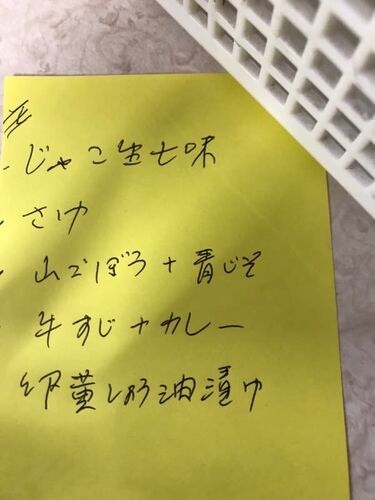 じゃこ生七味
さけ
山ごぼう+青じそ
牛すじ+カレー
卵黄しょう油漬け